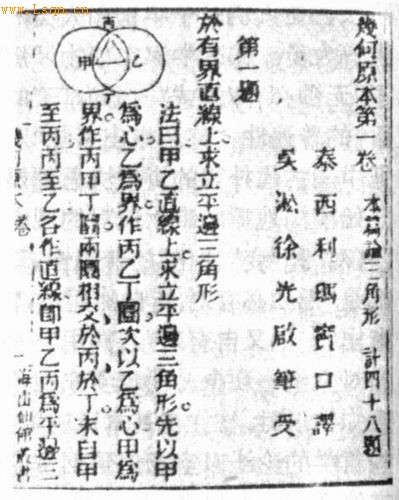 www.Lsqn.cn
幾何原本第一卷 本篇論三角形 計四十八題
泰西利瑪竇口譯
吳淞徐光啟筆受
第一題
於有界直線上求立平邊三角形
法曰甲乙直線上求立平邊三角形先以甲
為心乙為界作丙乙丁圜次以乙為心甲為
界作丙甲丁圜兩圜相交於丙於丁末自甲
至丙丙至乙各作直線即甲乙丙為平邊三
丙
甲 乙
丁
幾何原本卷一
海山仙館叢書